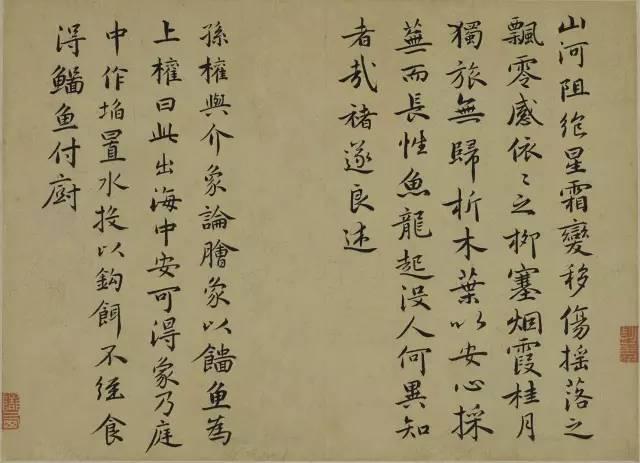 山河阻絕星霜變移傷搖落之
飄零感依〻之柳塞烟霞桂月
獨旅無歸析木葉以安心採
蕪而長性魚龍起没人何異知
者哉褚遂良述
孫權與介象論膾象以鯔魚為
上權曰此出海中安可得象乃庭
中作埳置水投以鈎餌不經食
得鯔魚付廚